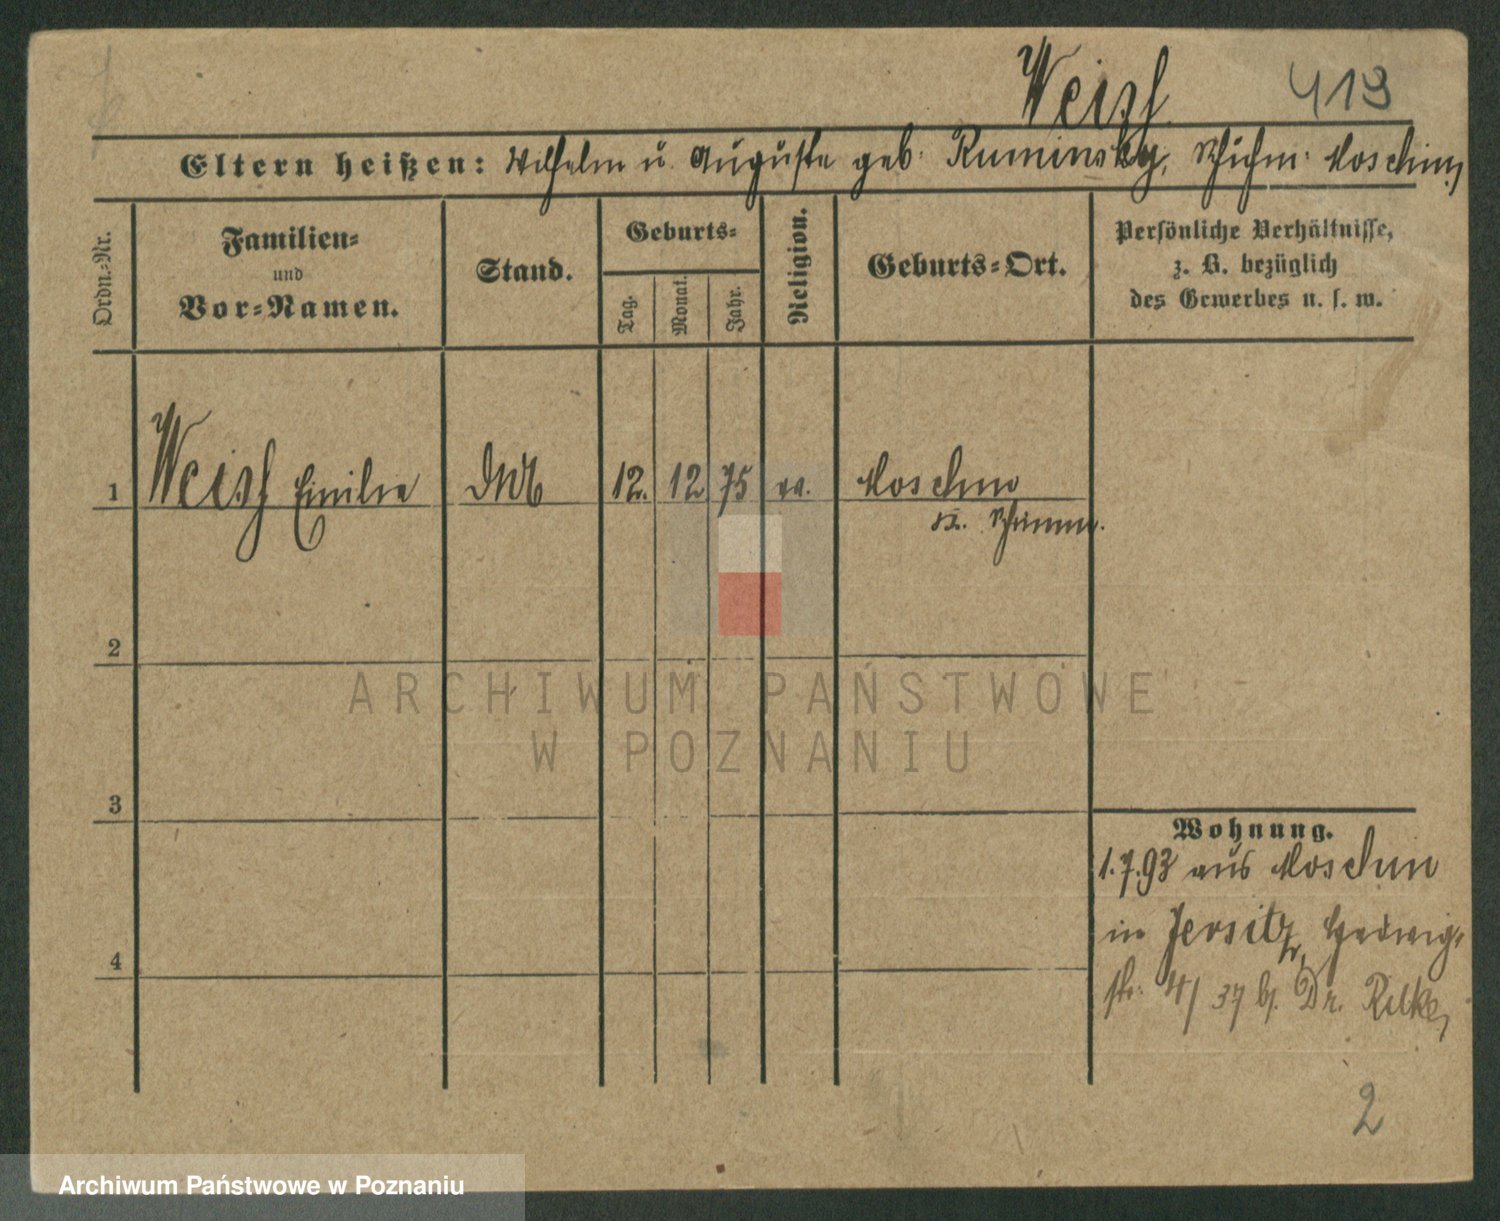 Weiss 419
Eltern heißen: Wilhelm u. Auguste geb. Ruminsky, Schuhm. Moschin,
Ordn.=Nr.
Familien=
und
Vor=Namen.
Stand.
Geburts=
Tag.
Monat.
Jahr.
Religion.
Geburts=Ort.
Persönliche Verhältnisse,
z. B. bezüglich
des Gewerbes u. s. w.
1 Weiss Emilie 12. 12 75 ev. Moschin
Kr. Schrimm.
2
3
4
Wohnung.
1.7.93 aus Moschin
in Jersitz, Hedwig=
str. 4/37 b. Dr.
2
ARCHIWUM PAŃSTWOWE
W POZNANIU
Archiwum Państwowe w Poznaniu